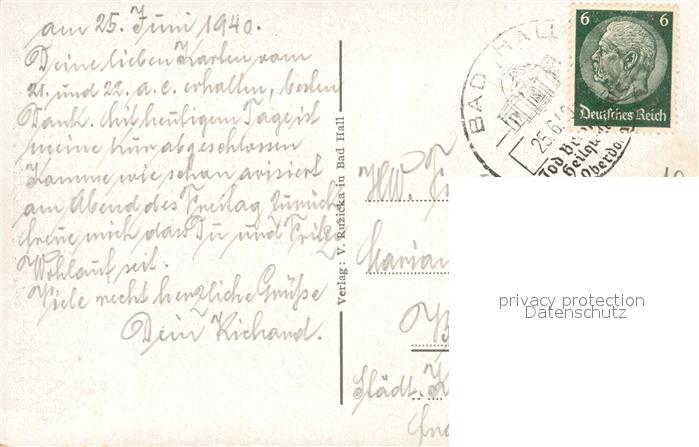 am 25. Juni 1940.
Deine lieben Karten vom
21. und 22. a. c. erhalten, besten
Dank. Mit heutigem Tage ist
meine Kur abgeschlossen
Komme wie schon avisiert
am Abend des Freitag zurück
freue mich dass Du und Fritz
Wohlauf seit.
Viele recht herzliche Grüße
Dein Richard.
Verlag: V. Ruzicka in Bad Hall
BAD HALL
25.6.40
Jod Br
Heilqu
Oberdo
6 6
Deutsches Reich
HW.
Marian
Städt. K
privacy protection
Datenschutz